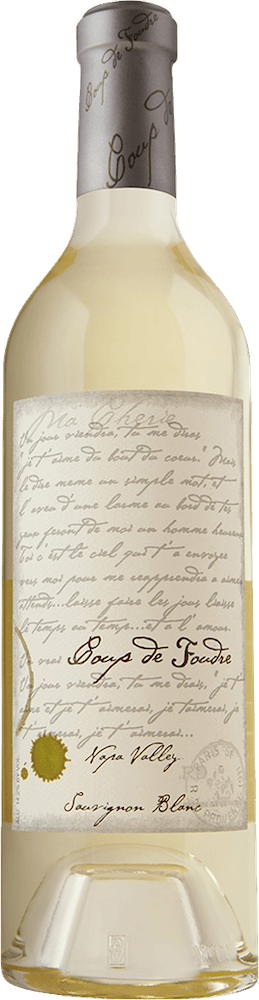 Coup de Foudre
Coup de
Ma Cherie
Un jour viendra, tu me diras
"je t'aime du bout du coeur." Mais
le dire meme un simple mot, et
l'aveu d'une larme au bord de tes
yeux feront de moi un homme heureux
Toi c'est le ciel qui t'a envoyee
vers moi pour me reapprendre a aimer
attends...laisse faire les jours laisse
le temps au temps...et a l'amour.
Un vrai Coup de Foudre
Un jour viendra, tu me diras, "je t'
aime et je t'aimerai, je t'aimerai,
je t'aimerai...
Napa Valley
PARIS
Sauvignon Blanc